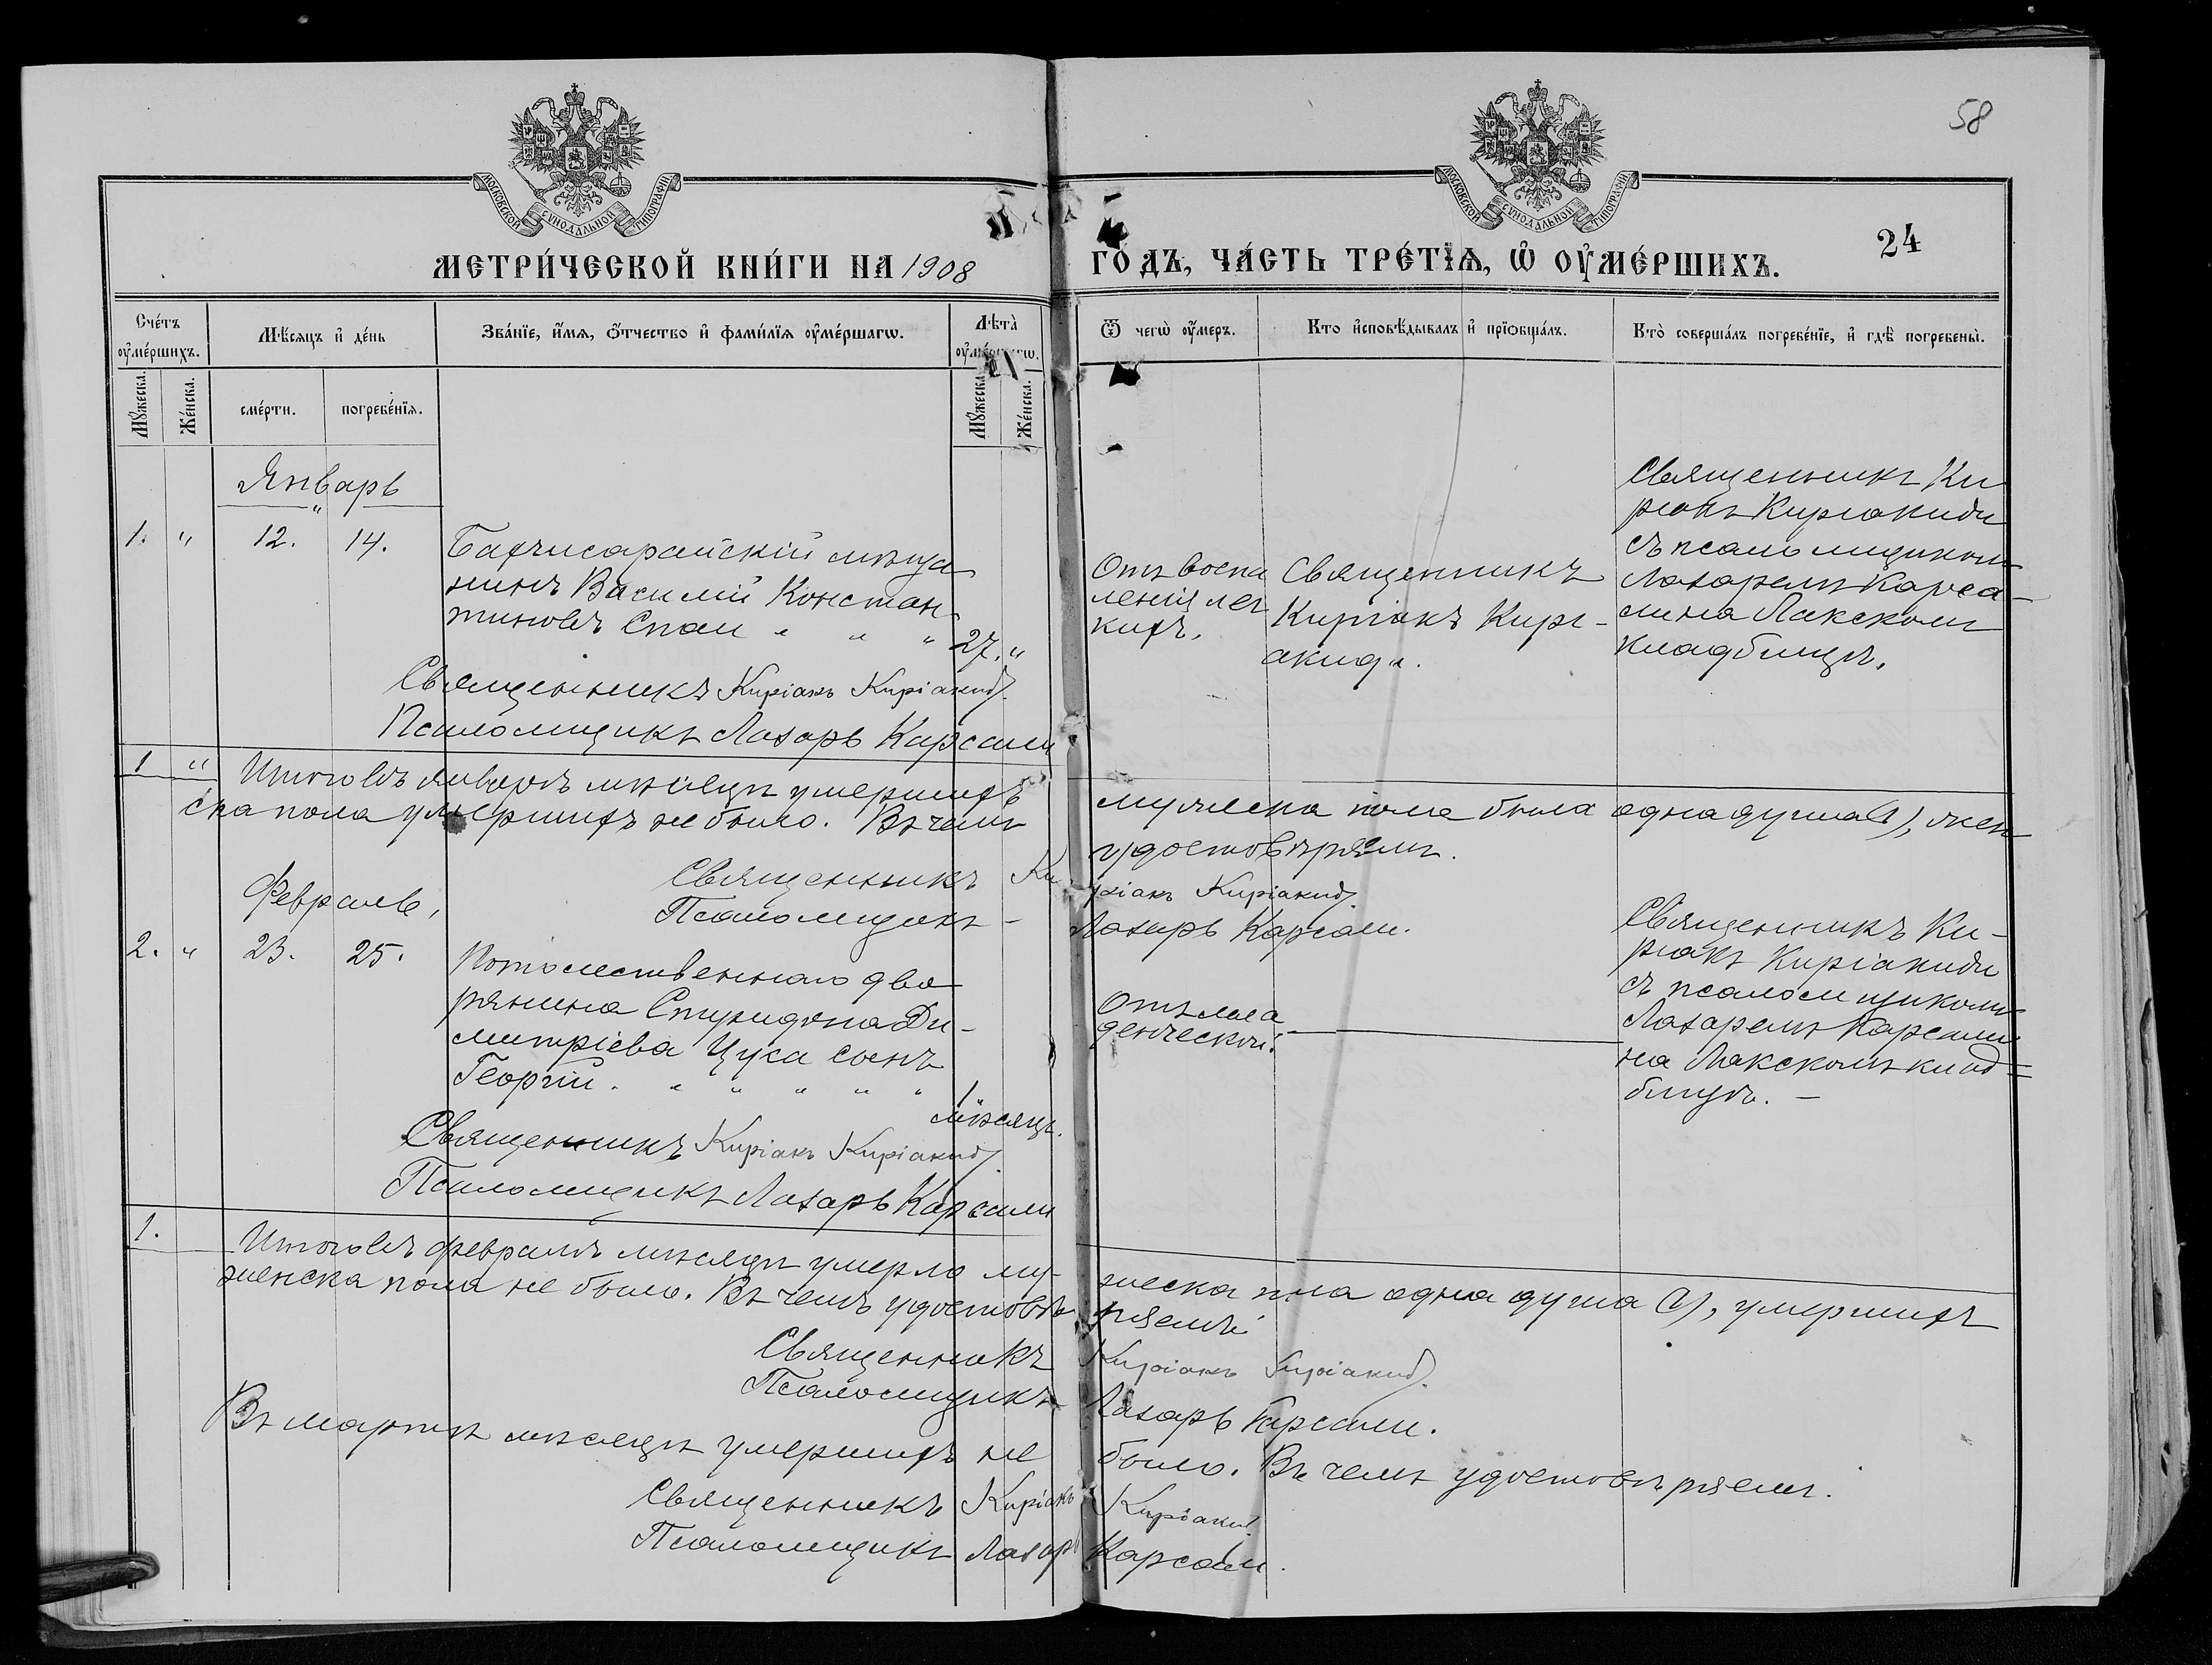 58
МОСКОВСКОЙ СУНОДАЛЬНОЙ ТИПОГРАФИИ
МОСКОВСКОЙ СУНОДАЛЬНОЙ ТИПОГРАФИИ
МЕТРИ́ЧЕСКОЙ КНИ́ГИ НА 1908
ГО́ДЪ, ЧА́СТЬ ТРЕ́ТІѦ, Ѡ ОУМЕ́РШИХЪ.
24
Сче́тъ оумéршихъ.
Мѣ́сяцъ и де́нь
Зва́нїе, и́мѧ, Ѻ́тчество и фами́лїѧ оумéршагѡ.
Лѣта̀ оумéршагѡ.
Ѿ чегѡ̀ оу́меръ.
Кто исповѣ́дывалъ и прїѡбща́лъ.
Кто̀ соверша́лъ погребе́нїе, и гдѣ̀ погребены̀.
Мꙋ́жеска.
Же́нска.
сме́рти.
погребе́нїѧ.
Мꙋ́жеска.
Же́нска.
Январь
"
1. " 12. 14.
Бахчисарайскій мѣща
нинъ Василій Констан
тиновъ Спаи " " " 27. "
Отъ воспа
ленія лег
кихъ.
Священникъ
Киріакъ Кирі-
акиди.
Священникъ Ки
ріакъ Киріакиди
съ псаломщикомъ
Лазаремъ Карса-
ли на Лакскомъ
кладбищѣ.
Священникъ Киріакъ Киріакиди.
Псаломщикъ Лазарь Карсали
1 " Итого въ январѣ мѣсяцѣ умершихъ
мужеска пола была одна душа (1), жен
ска пола умершихъ не было. Въ чемъ
удостовѣряемъ.
Священникъ Киріакъ Киріакиди.
Псаломщикъ - Лазарь Карсали.
Февраль,
2. " 23. 25.
Потомственнаго дво
рянина Спиридона Ди-
митріева Цука сынъ
Георгій. " " " " " 1
мѣсяцъ.
Отъ мла
денческой.
Священникъ Ки-
ріакъ Киріакиди
съ псаломщикомъ
Лазаремъ Карсали
на Лакскомъ клад=
бищѣ. -
Священникъ Киріакъ Киріакиди.
Псаломщикъ Лазарь Карсали
1. Итого въ февралѣ мѣсяцѣ умерло му-
жеска пола одна душа (1), умершихъ
женска пола не было. Въ чемъ удостовѣ
ряемъ
Священникъ Киріакъ Киріакиди.
Псаломщикъ Лазарь Карсали.
Въ мартѣ мѣсяцѣ умершихъ не было. Въ чемъ удостовѣряемъ.
Священникъ Киріакъ Киріакиди.
Псаломщикъ Лазарь Карсали.